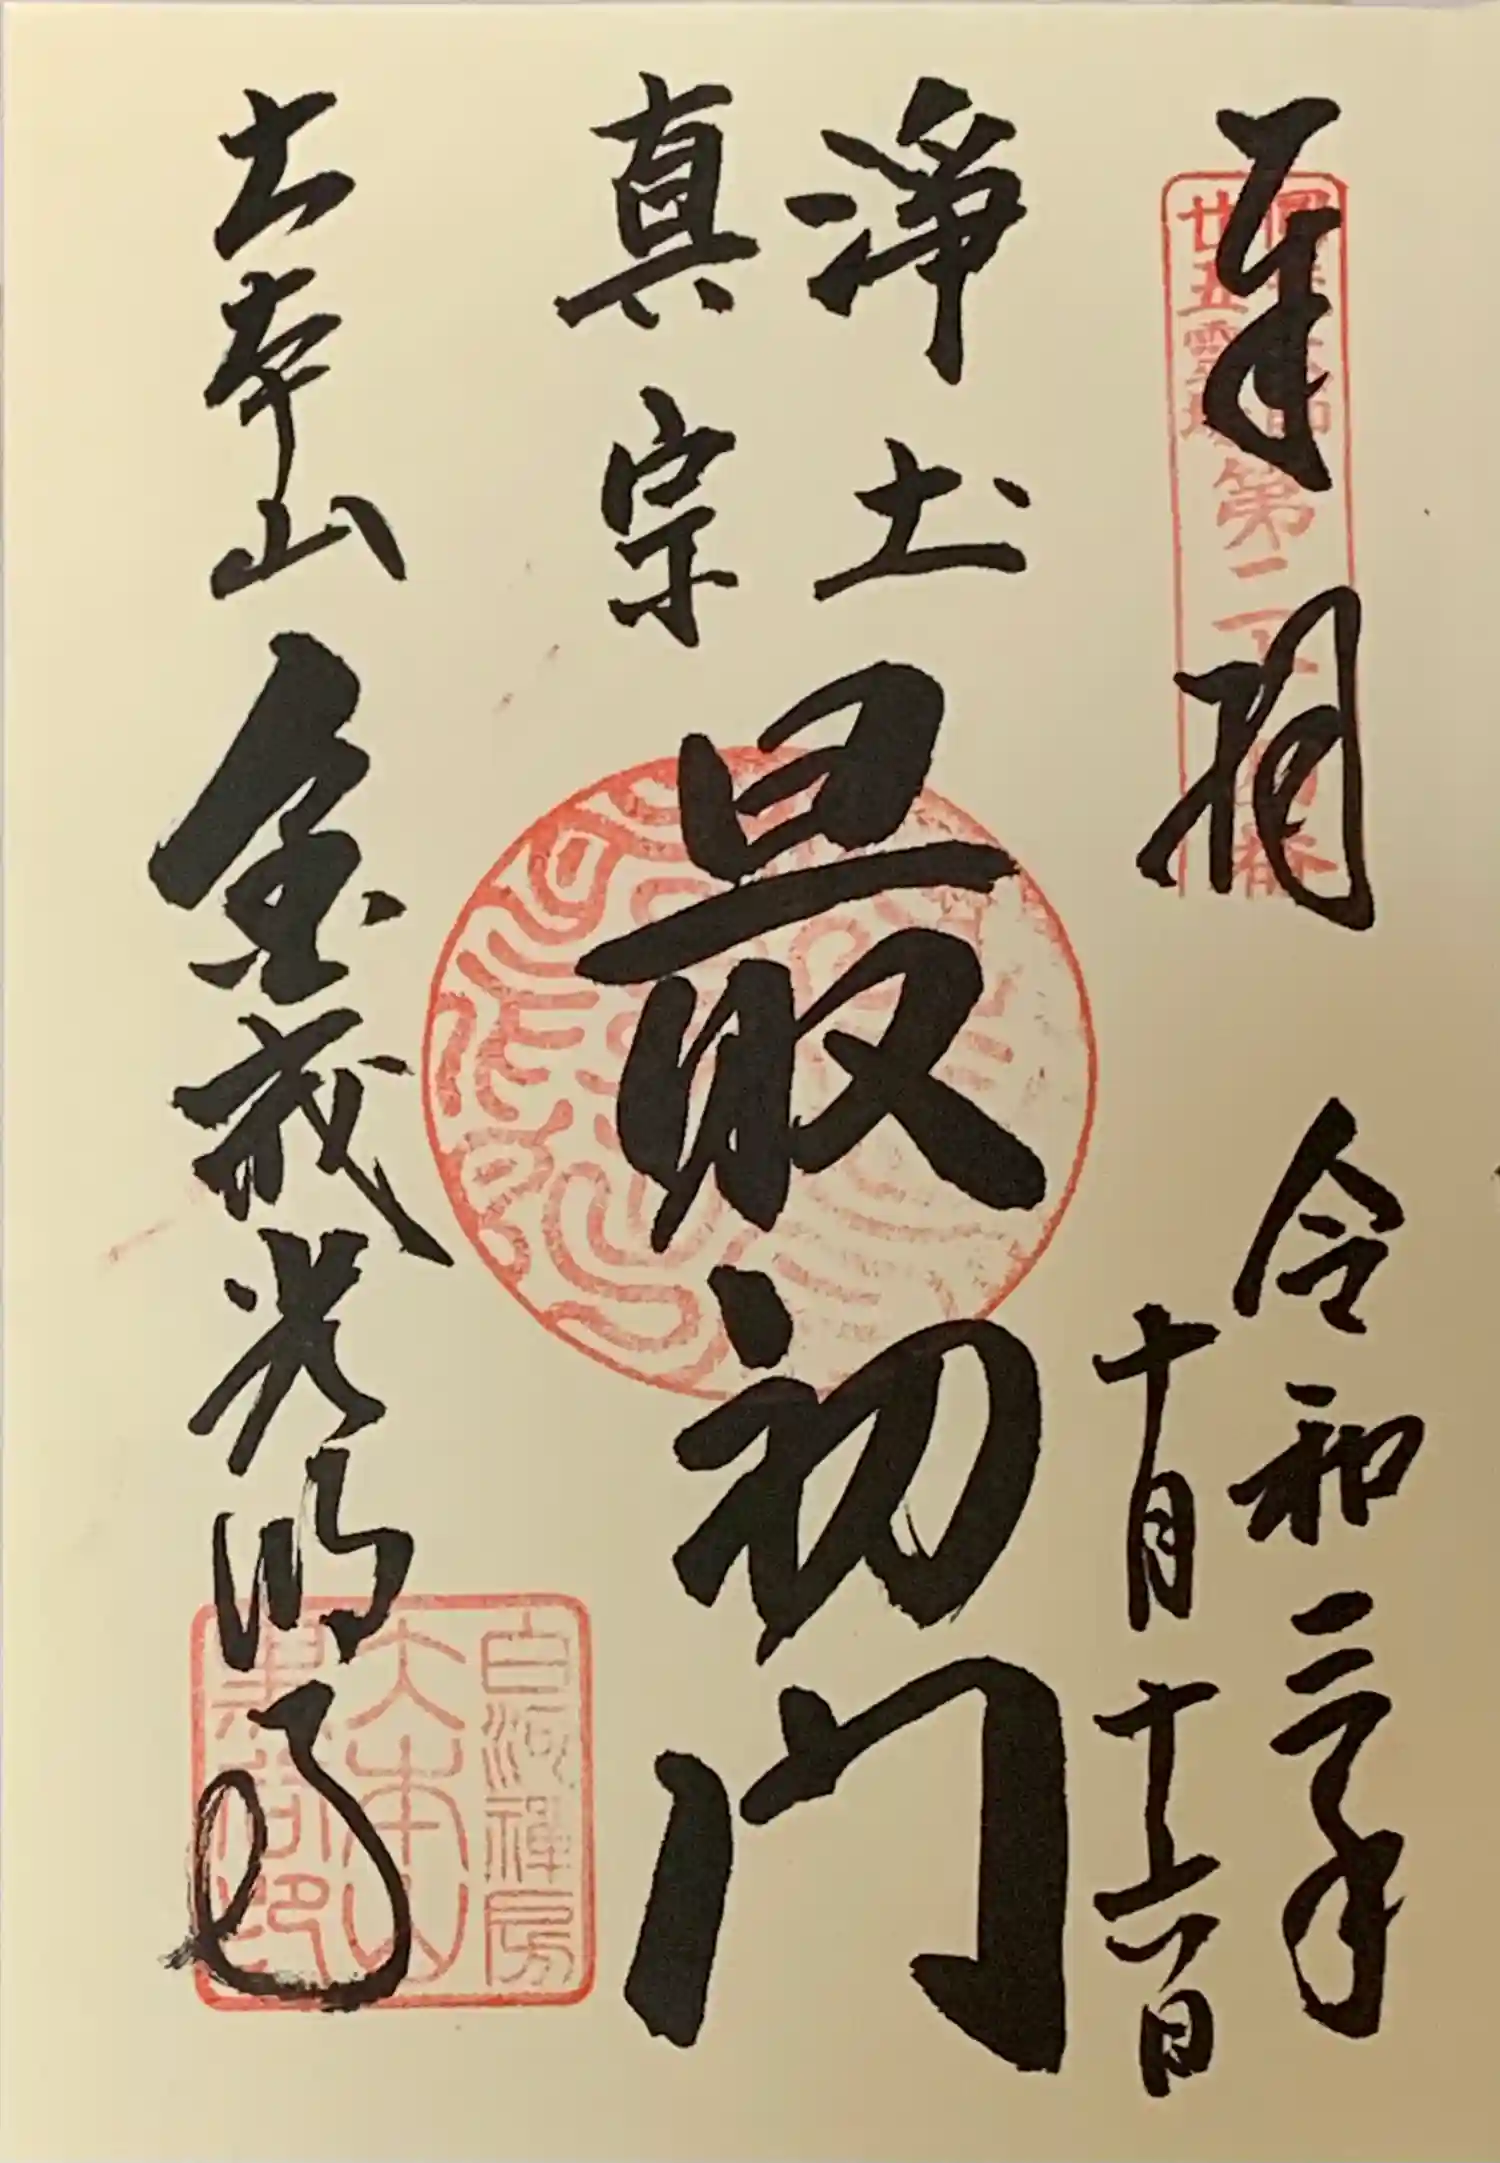 奉拝
圓光大師
廿五霊場
第二十四番
令和二年
十月十六日
浄土
真宗
最初門
大本山
金戒光明寺
白河禅房
大本山